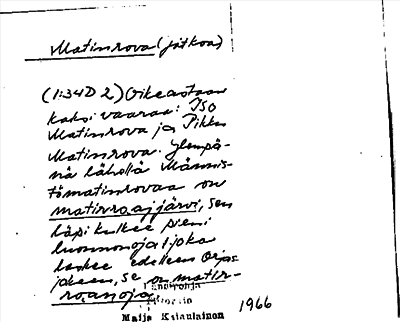 Matinrova (jatkoa)
(1:34D 2) Oikeastaan
kaksi vaaraa: Iso
Matinrova ja Pikku
Matinrova. Ylempä-
nä lähellä Männis-
tömatinrovaa on
matinroajjärvi, sen
läpi kulkee pieni
luonnonoja, joka
laskee edelleen Orjas
jokeen, se on matin-
roanoja.
Maija Katalainen 1966